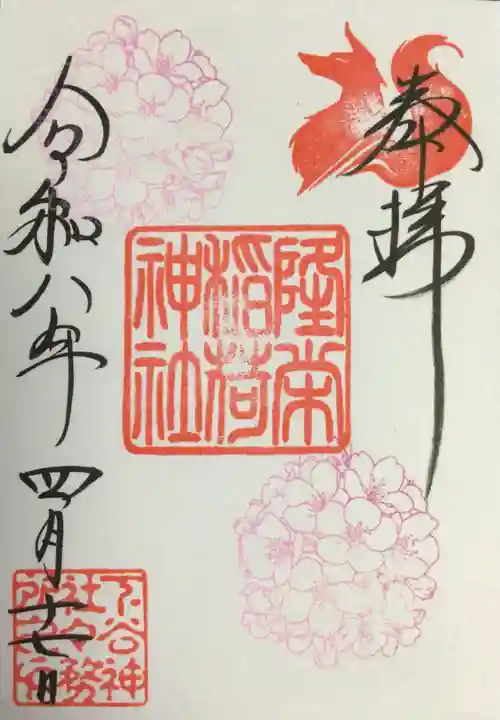 奉拝
隆栄
稲荷
神社
令和八年 四月十七日
下谷神
社々務
所之印